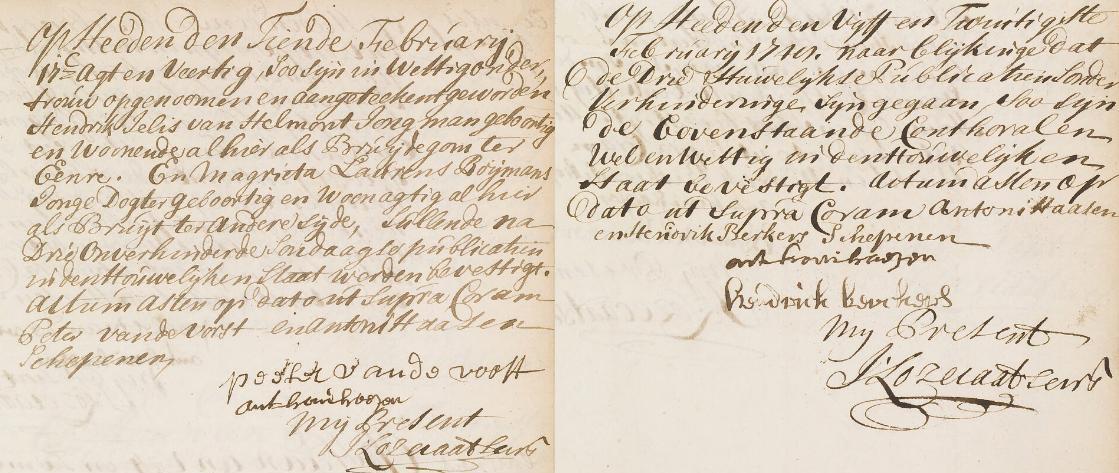 Op Heeden den Tiende Februarij
17=C Agt en Veertig, Soo sijn in Wettigonder,
trouw opgenoomen en aangeteekent geworden
Hendrik Jelis van Helmont Jong man geboortig
en Woonende alhier als Bruijdegom ter
Eenre. En Magrieta Laurens Boijmans
Jonge Dogter geboortig en Woonagtig al hier
als Bruijt ter Andere Sijde, Sullende na
Drie Onverhinderde Sondaagse publicatien
in den Houwelijken Staat worden bevestigt.
Actum Asten op dato ut Supra Coram
Peter vande Vorst en Antoni Haasen
Schepenen,
peeter vande vorst
anthonihaasen
Mij Present
Op Heeden den Vijff en Twintigste
Februarij 1748. naar blijkinge dat
de Drie Huwelijkse Publicatien Sonder
Verhinderinge Sijn gegaan, Soo Sijn
de Bovenstaande Conthoralen
Wel en Wettig in den Houwelijken
Staat bevestigt. Actum Asten Op
dato ut Supra Coram Antoni Haasen
en Hendrik Berkers Schepenen
anthonihaasen
hendrick berckers
Mij Present